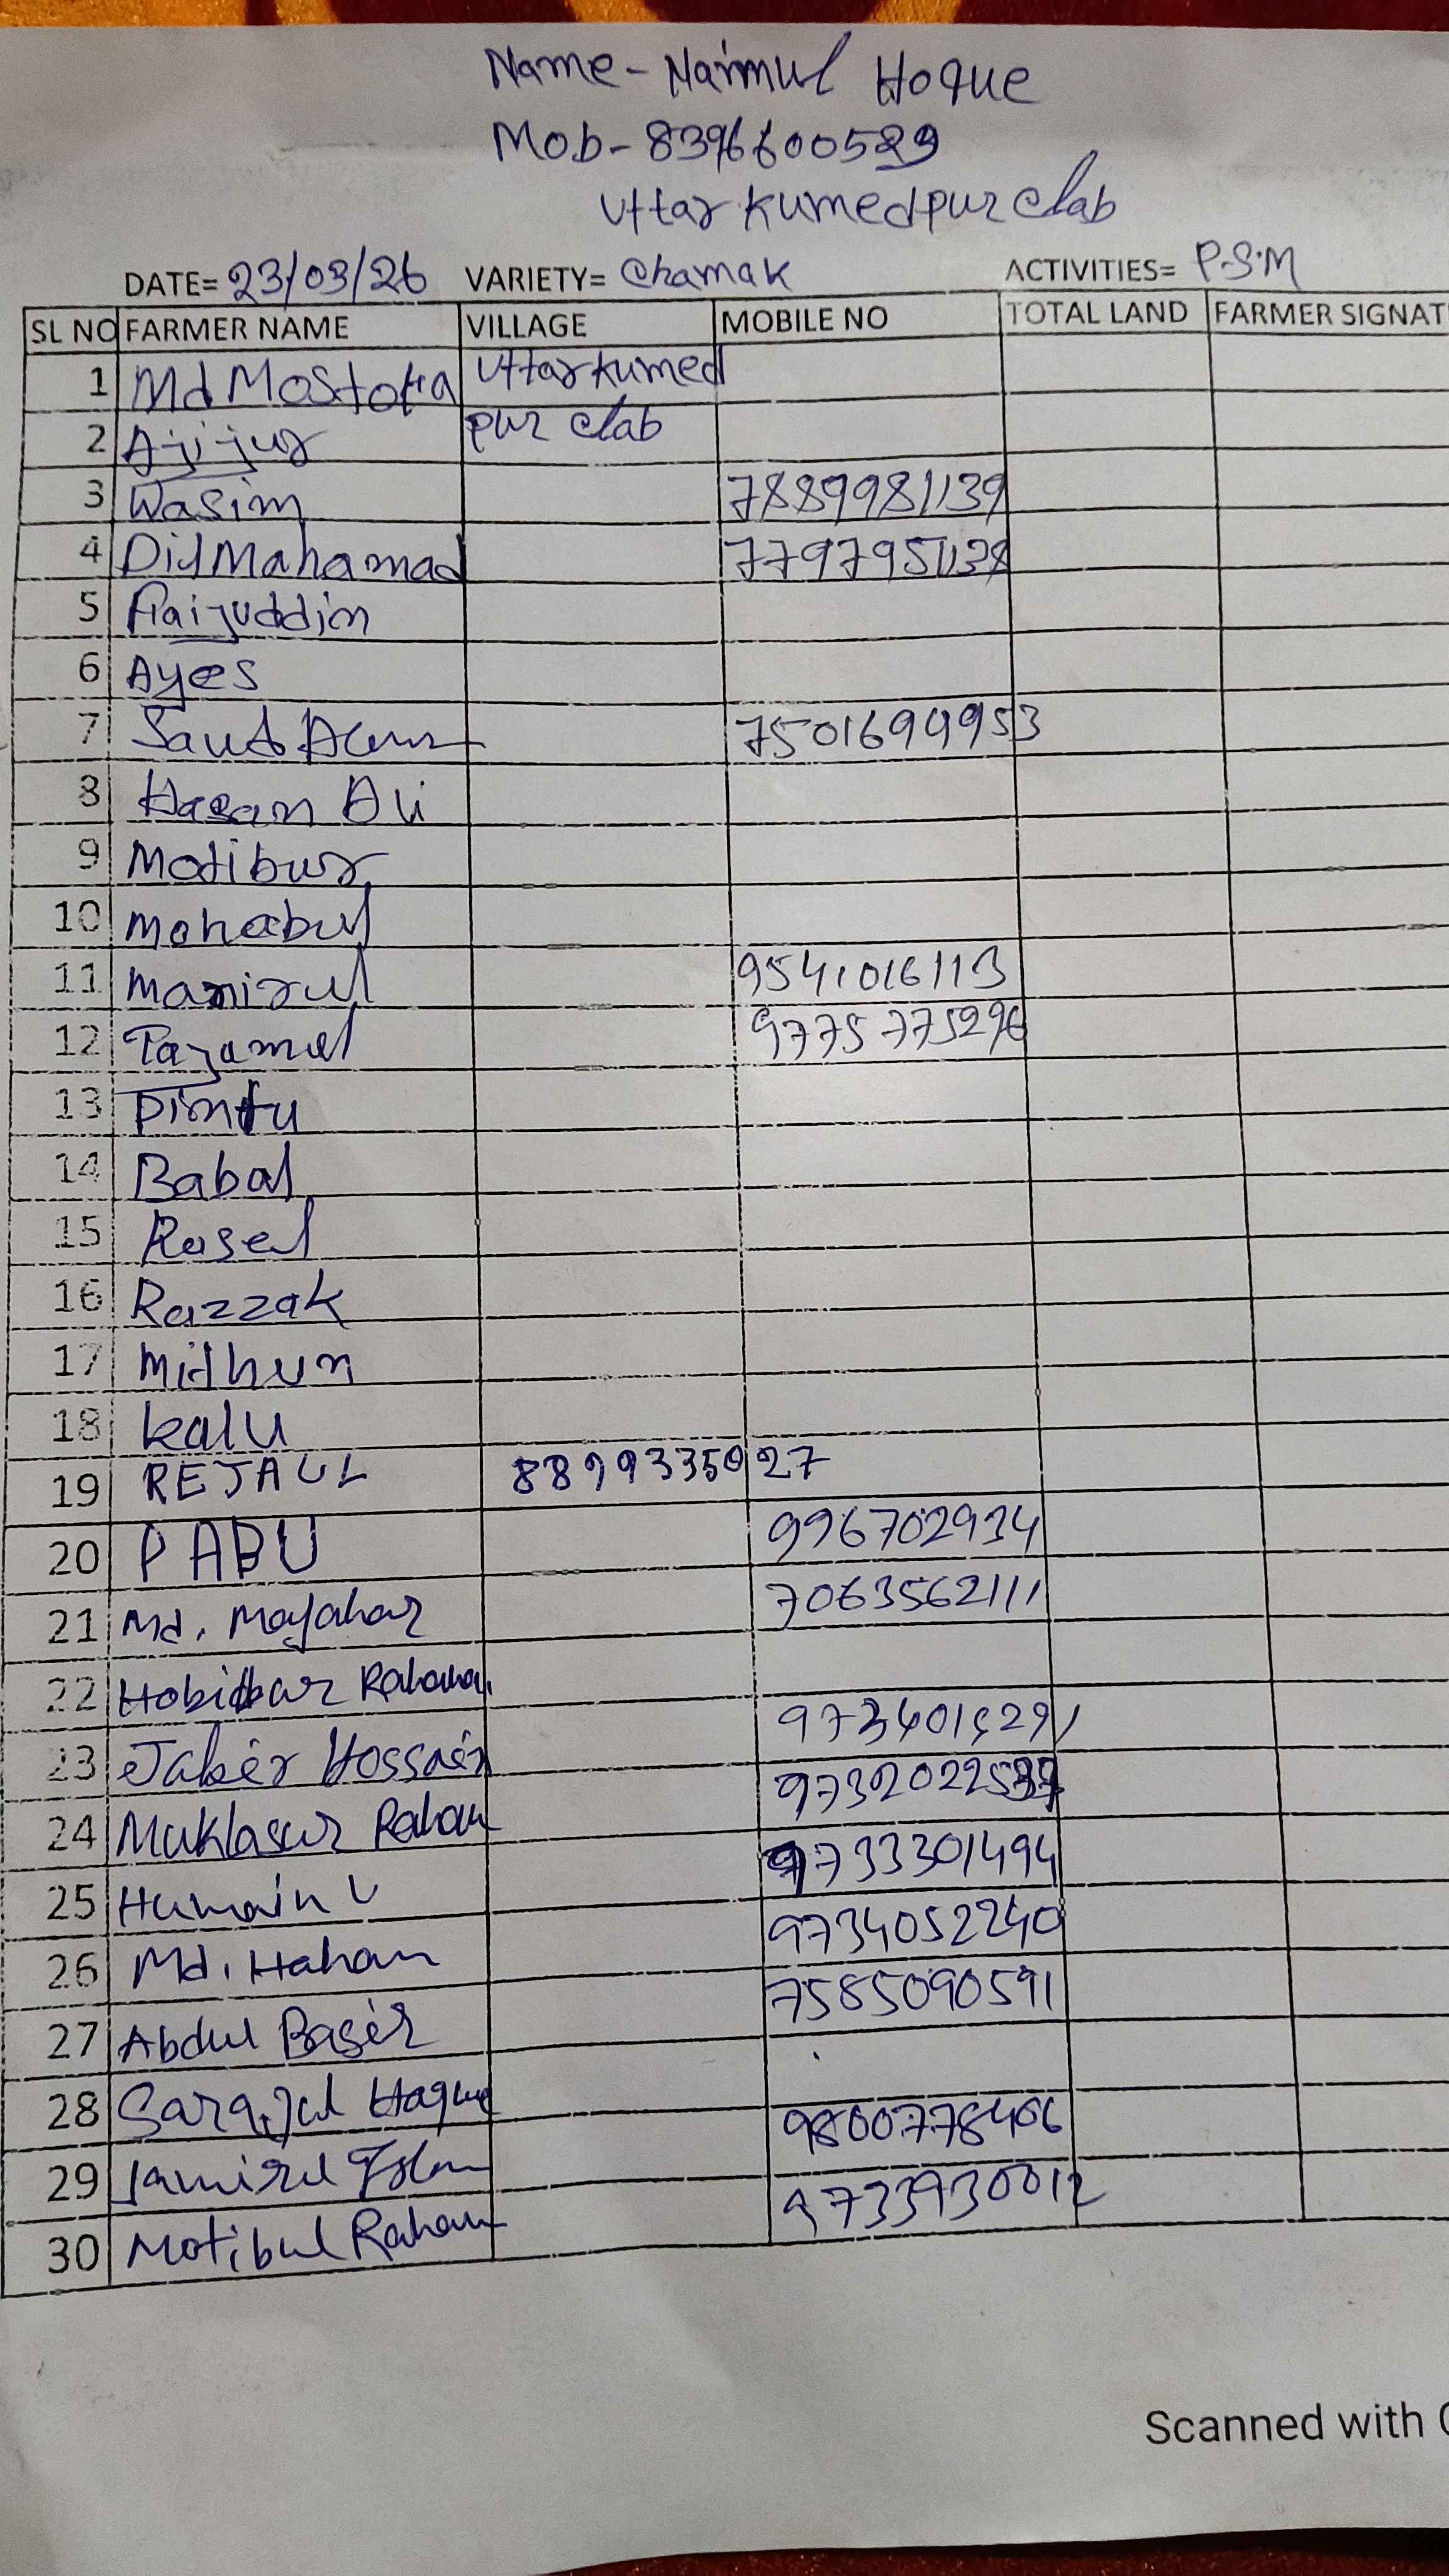 Name - Naimul Hoque
Mob - 8396600529
Uttar kumedpur clab
DATE= 23/03/26 VARIETY= Chamak ACTIVITIES= P.S.M
SL NO FARMER NAME VILLAGE MOBILE NO TOTAL LAND FARMER SIGNAT
1 Md Mostofa Uttar kumed
2 Ajijur pur clab
3 Wasim 7889981139
4 Dil Mahamad
5
6 Ayes
7 7501699953
8 Hasan Ali
9 Motibur
10 Mohabul
11 Manirul 9541016113
12 Tazamul 9775775296
13 Pintu
14 Babal
15 Rasel
16 Razzak
17 Mithun
18 Kalu
19 REJAUL 8899335027
20 996702934
21 Md. Moyahar 7063562111
22 Hobibar
23 Jaber Hossain
24 Muklasur
25 9733301494
26 Md. 9734052240
27 Abdul Baser 7585090591
28 Haque
29 9800778406
30 Motibul 9733930012
Scanned with